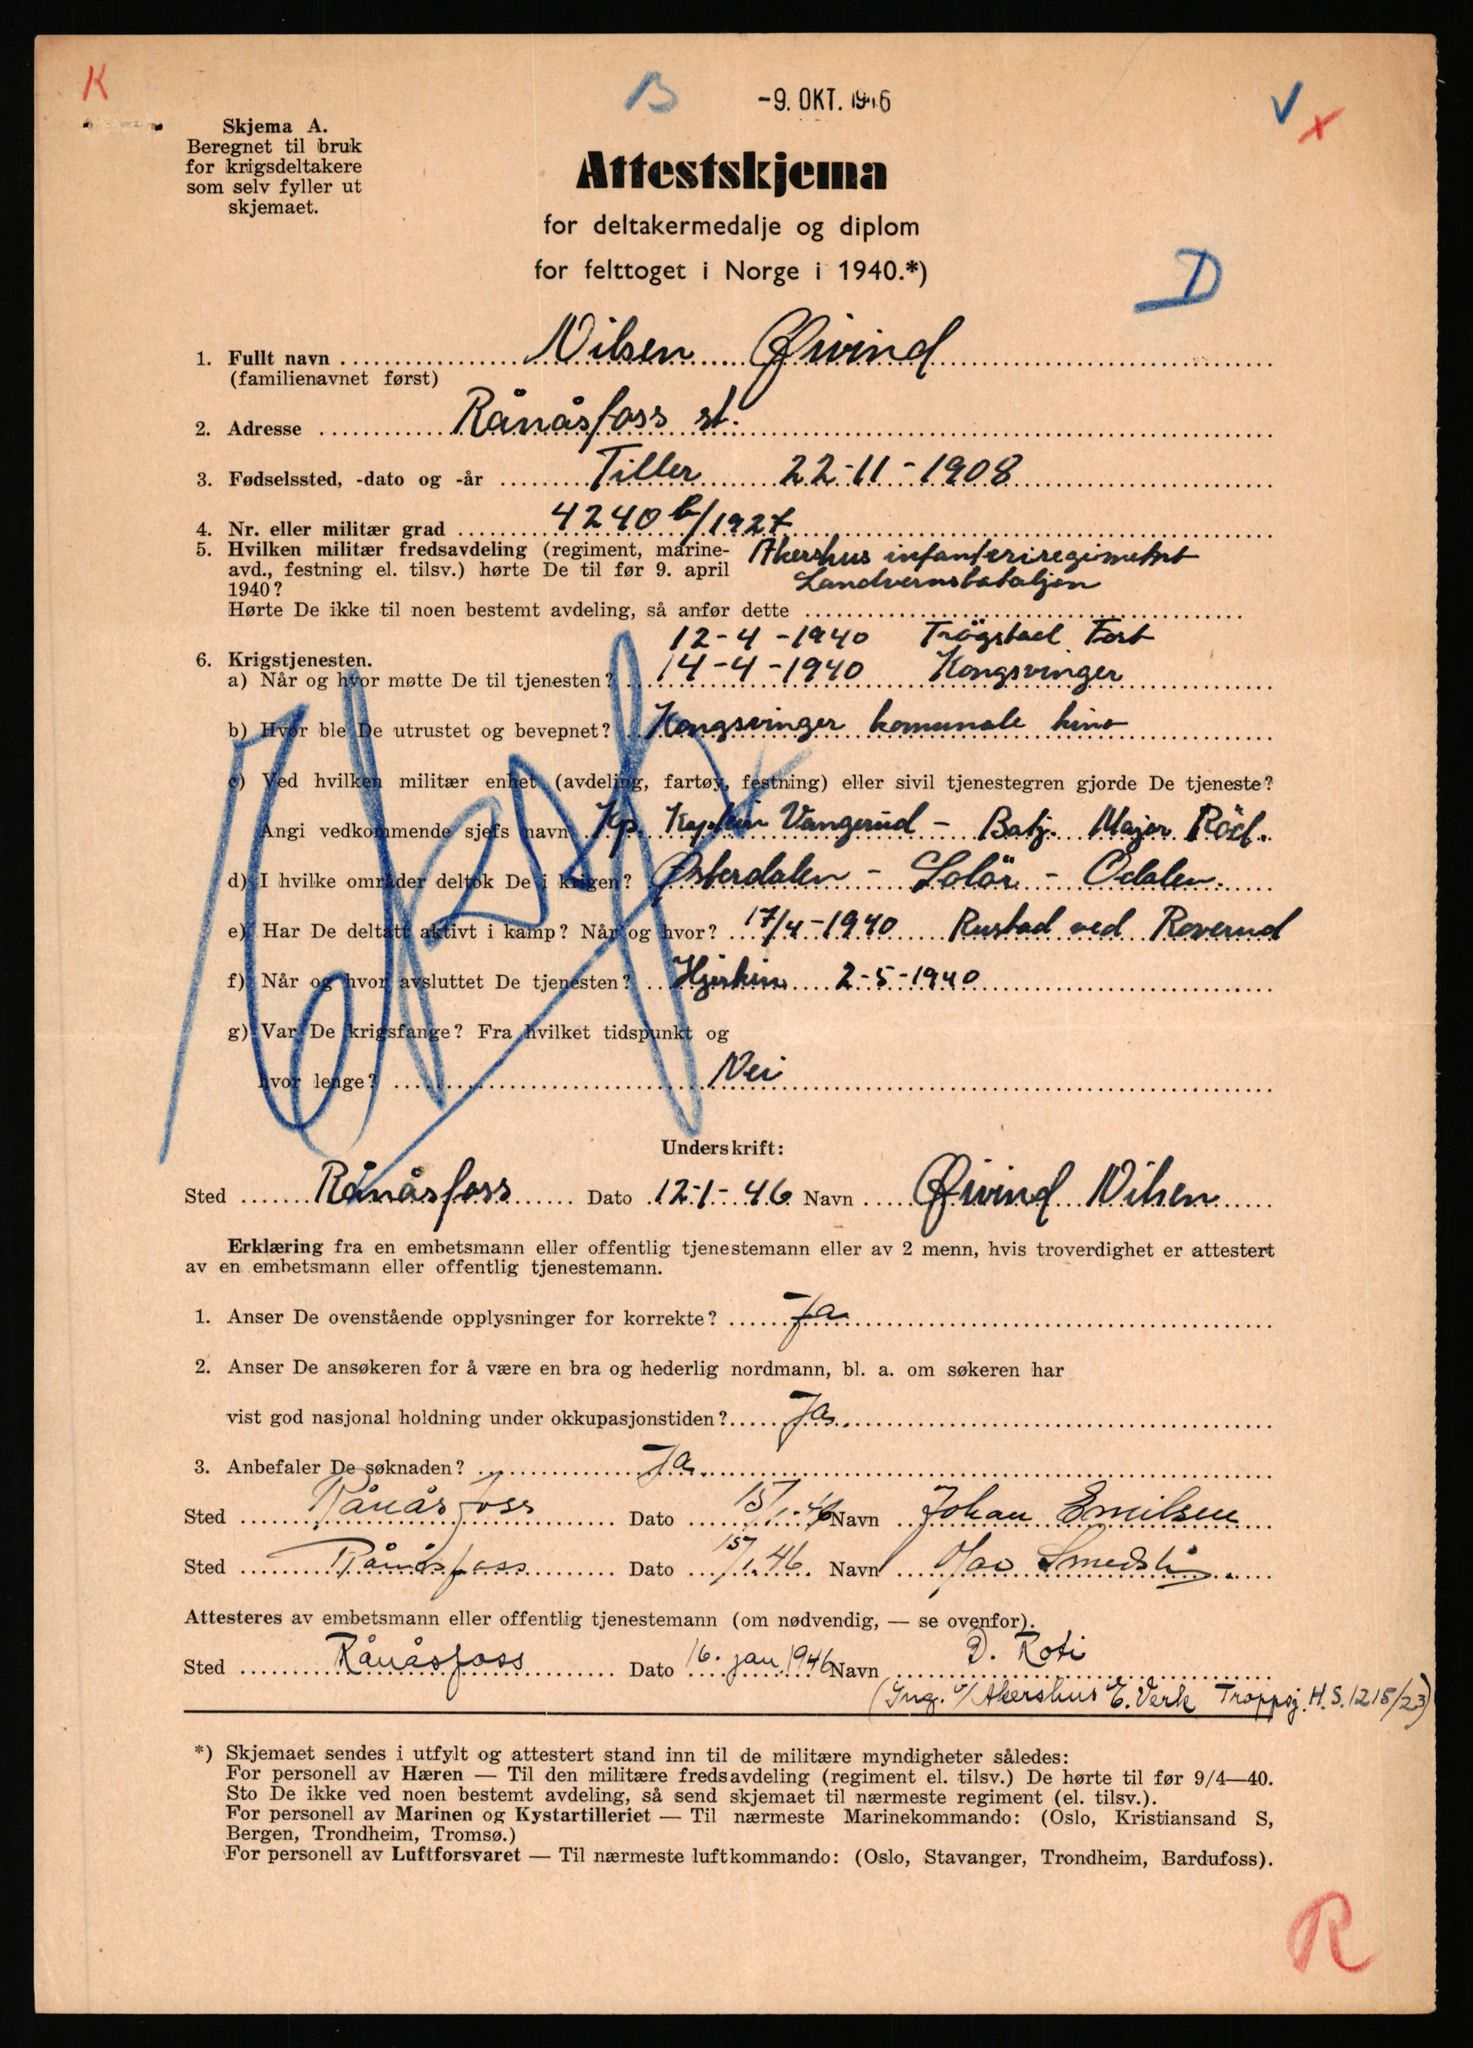 K
B
-9. OKT. 1946
V x
Skjema A.
Beregnet til bruk
for krigsdeltakere
som selv fyller ut
skjemaet.
Attestskjema
for deltakermedalje og diplom
for felttoget i Norge i 1940.*)
D
1. Fullt navn Nilsen Øivind
(familienavnet først)
2. Adresse Rånåsfoss st.
3. Fødselssted, -dato og -år Tiller 22-11-1908
4. Nr. eller militær grad 4240 b/1927
5. Hvilken militær fredsavdeling (regiment, marine- Akershus infanteriregiment
avd., festning el. tilsv.) hørte De til før 9. april Landvernsbataljon
1940?
Hørte De ikke til noen bestemt avdeling, så anfør dette
12-4-1940 Trögstad Fort
6. Krigstjenesten.
a) Når og hvor møtte De til tjenesten? 14-4-1940 Kongsvinger
b) Hvor ble De utrustet og bevepnet? Kongsvinger komunale kino
c) Ved hvilken militær enhet (avdeling, fartøy, festning) eller sivil tjenestegren gjorde De tjeneste?
Angi vedkommende sjefs navn Kp. Kaptein Vangerud - Batj. Major Röd.
d) I hvilke områder deltok De i krigen? Østerdalen - Solör - Odalen.
e) Har De deltatt aktivt i kamp? Når og hvor? 17/4-1940 Rustad ved Roverud
f) Når og hvor avsluttet De tjenesten? Hjerkin 2-5-1940
g) Var De krigsfange? Fra hvilket tidspunkt og
hvor lenge? Nei
Underskrift:
Sted Rånåsfoss Dato 12-1-46 Navn Øivind Nilsen
Erklæring fra en embetsmann eller offentlig tjenestemann eller av 2 menn, hvis troverdighet er attestert
av en embetsmann eller offentlig tjenestemann.
1. Anser De ovenstående opplysninger for korrekte? Ja
2. Anser De ansøkeren for å være en bra og hederlig nordmann, bl. a. om søkeren har
vist god nasjonal holdning under okkupasjonstiden? Ja
3. Anbefaler De søknaden? Ja
Sted Rånåsfoss Dato 15/1-46 Navn Johan Emilsen
Sted Rånåsfoss Dato 15/1.46. Navn
Attesteres av embetsmann eller offentlig tjenestemann (om nødvendig, — se ovenfor).
Sted Rånåsfoss Dato 16. jan. 1946 Navn D. Roti
(Ing. v/Akershus E.Verk Troppsj. H.S. 1215/23)
*) Skjemaet sendes i utfylt og attestert stand inn til de militære myndigheter således:
For personell av Hæren — Til den militære fredsavdeling (regiment el. tilsv.) De hørte til før 9/4—40.
Sto De ikke ved noen bestemt avdeling, så send skjemaet til nærmeste regiment (el. tilsv.).
For personell av Marinen og Kystartilleriet — Til nærmeste Marinekommando: (Oslo, Kristiansand S,
Bergen, Trondheim, Tromsø.)
For personell av Luftforsvaret — Til nærmeste luftkommando: (Oslo, Stavanger, Trondheim, Bardufoss).
R